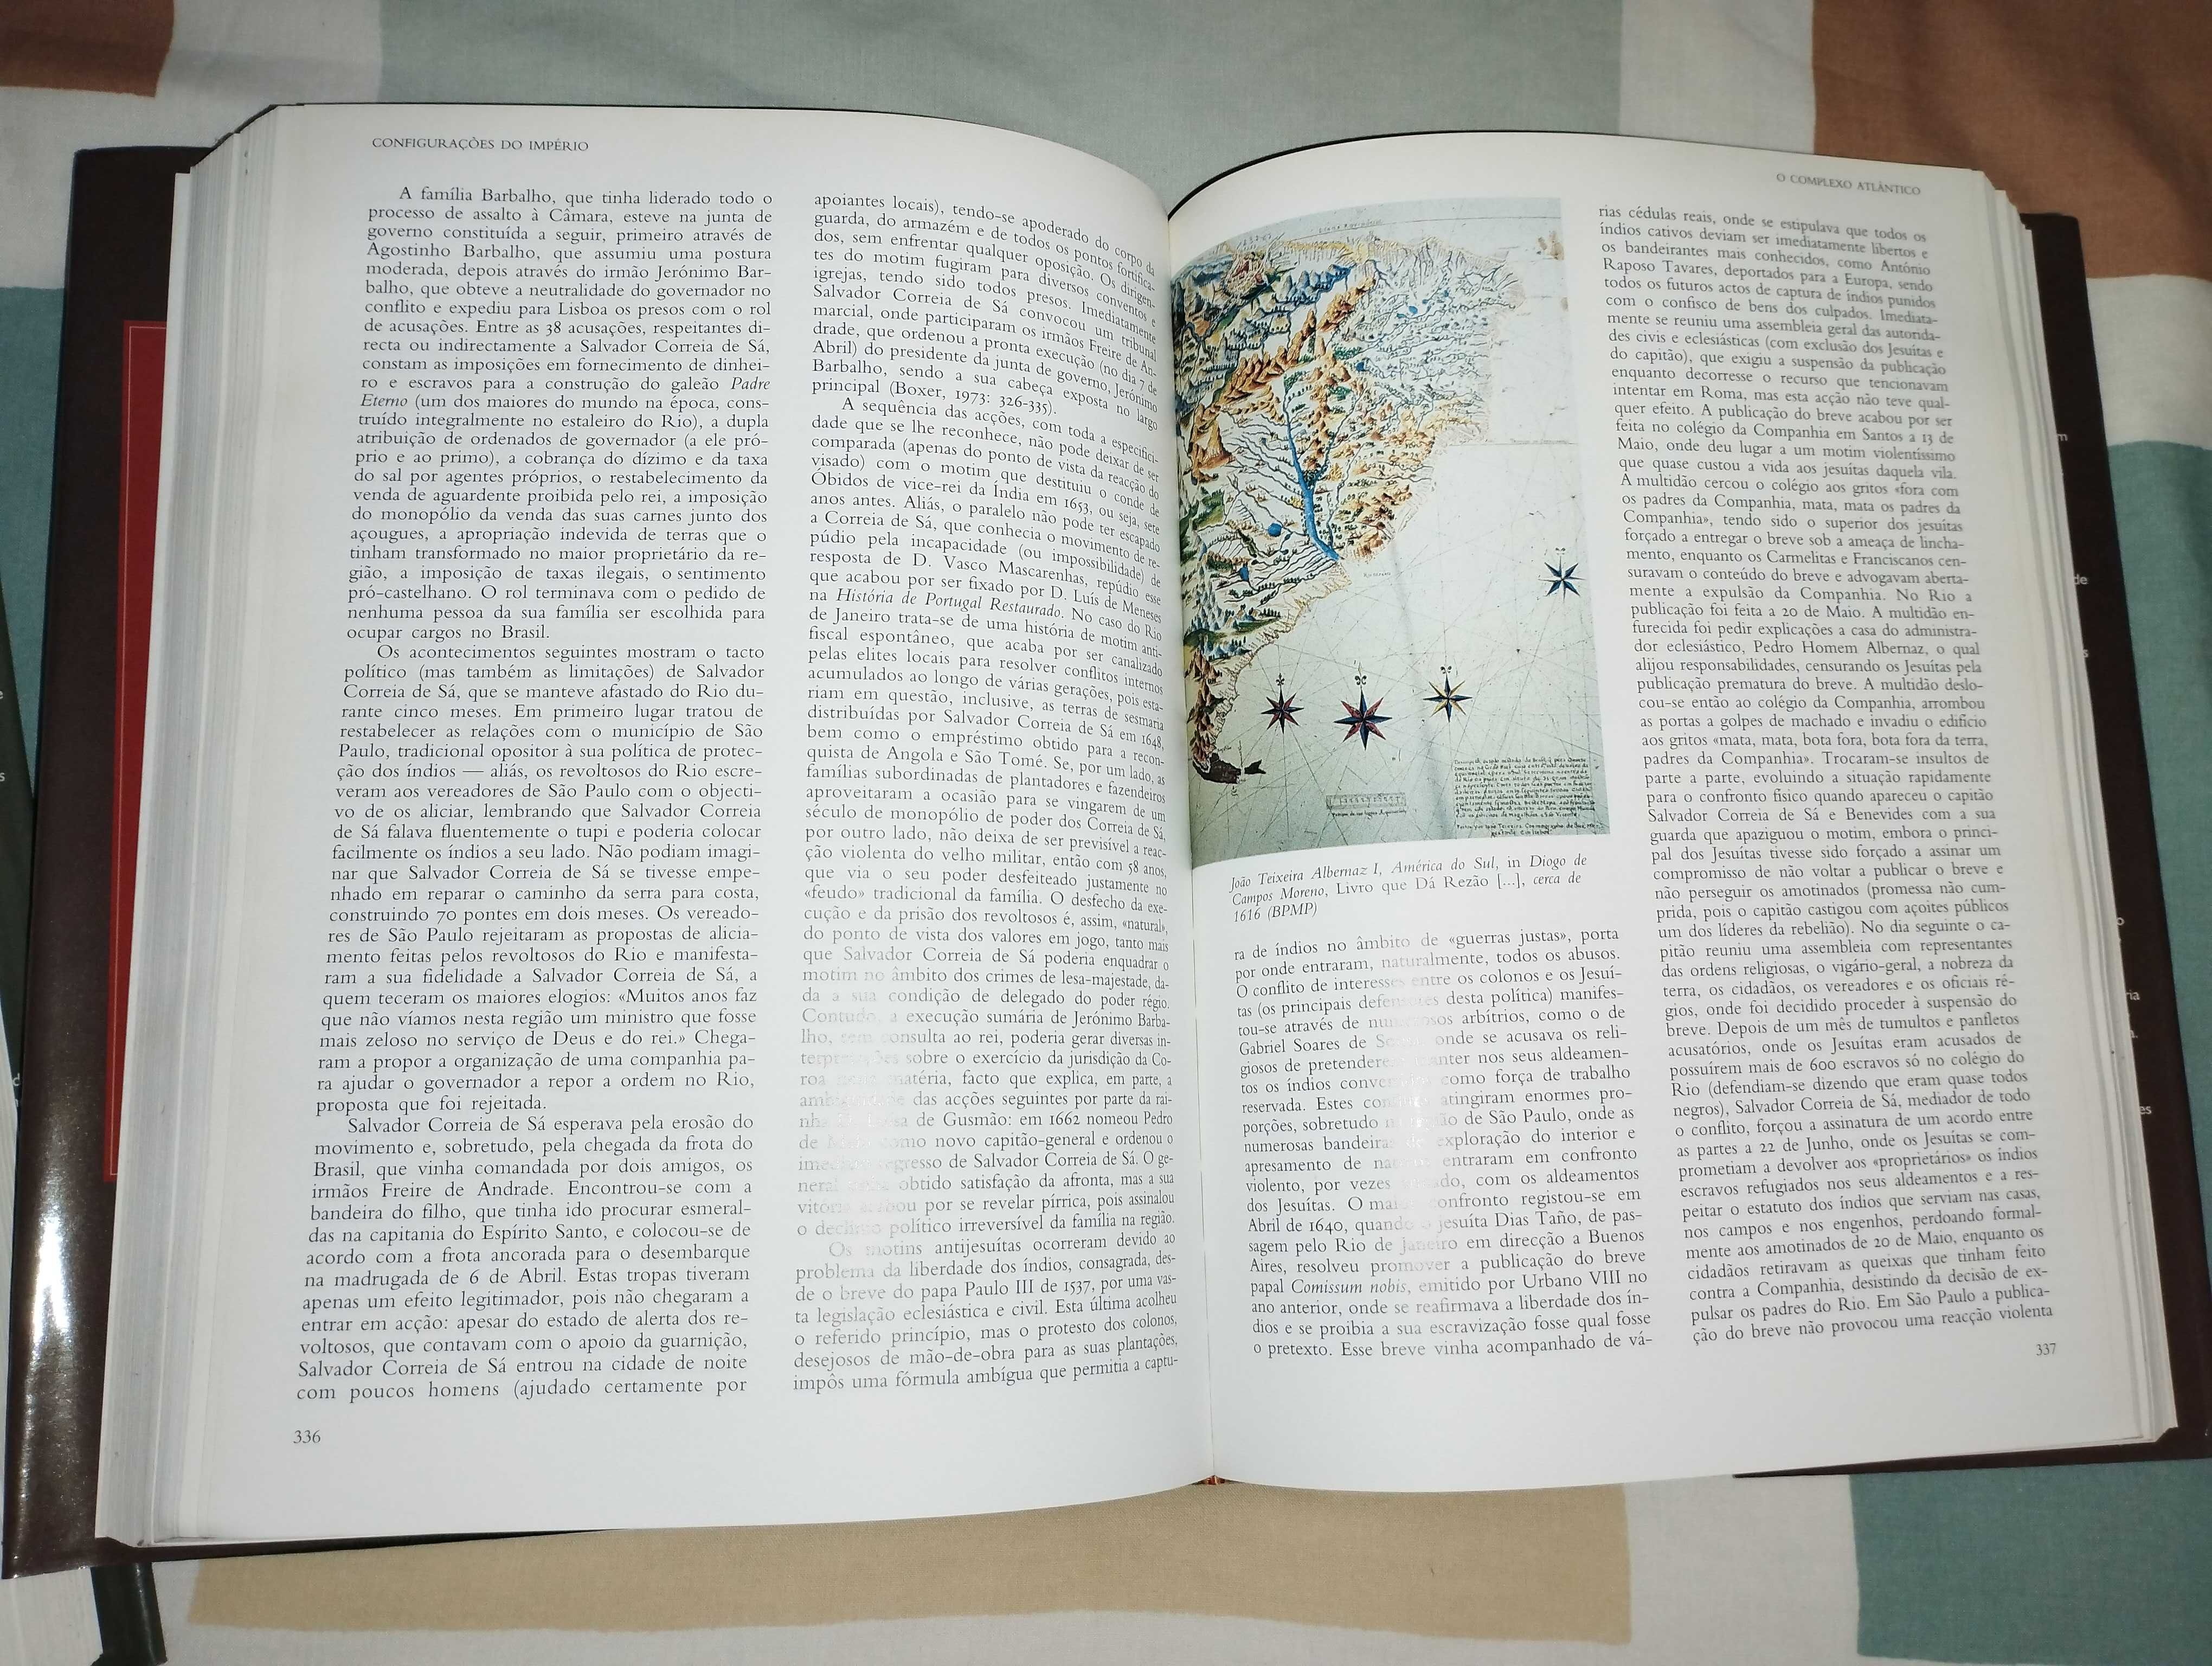 CONFIGURAÇÕES DO IMPÉRIO
A família Barbalho, que tinha liderado todo o
processo de assalto à Câmara, esteve na junta de
governo constituída a seguir, primeiro através de
Agostinho Barbalho, que assumiu uma postura
moderada, depois através do irmão Jerónimo Bar-
balho, que obteve a neutralidade do governador no
conflito e expediu para Lisboa os presos com o rol
de acusações. Entre as 38 acusações, respeitantes di-
recta ou indirectamente a Salvador Correia de Sá,
constam as imposições em fornecimento de dinhei-
ro e escravos para a construção do galeão Padre
Eterno (um dos maiores do mundo na época, cons-
truído integralmente no estaleiro do Rio), a dupla
atribuição de ordenados de governador (a ele pró-
prio e ao primo), a cobrança do dízimo e da taxa
do sal por agentes próprios, o restabelecimento da
venda de aguardente proibida pelo rei, a imposição
do monopólio da venda das suas carnes junto dos
açougues, a apropriação indevida de terras que o
tinham transformado no maior proprietário da re-
gião, a imposição de taxas ilegais, o sentimento
pró-castelhano. O rol terminava com o pedido de
nenhuma pessoa da sua família ser escolhida para
ocupar cargos no Brasil.
Os acontecimentos seguintes mostram o tacto
político (mas também as limitações) de Salvador
Correia de Sá, que se manteve afastado do Rio du-
rante cinco meses. Em primeiro lugar tratou de
restabelecer as relações com o município de São
Paulo, tradicional opositor à sua política de protec-
ção dos índios — aliás, os revoltosos do Rio escre-
veram aos vereadores de São Paulo com o objecti-
vo de os aliciar, lembrando que Salvador Correia
de Sá falava fluentemente o tupi e poderia colocar
facilmente os índios a seu lado. Não podiam imagi-
nar que Salvador Correia de Sá se tivesse empe-
nhado em reparar o caminho da serra para costa,
construindo 70 pontes em dois meses. Os vereado-
res de São Paulo rejeitaram as propostas de alicia-
mento feitas pelos revoltosos do Rio e manifesta-
ram a sua fidelidade a Salvador Correia de Sá, a
quem teceram os maiores elogios: «Muitos anos faz
que não víamos nesta região um ministro que fosse
mais zeloso no serviço de Deus e do rei.» Chega-
ram a propor a organização de uma companhia pa-
ra ajudar o governador a repor a ordem no Rio,
proposta que foi rejeitada.
Salvador Correia de Sá esperava pela erosão do
movimento e, sobretudo, pela chegada da frota do
Brasil, que vinha comandada por dois amigos, os
irmãos Freire de Andrade. Encontrou-se com a
bandeira do filho, que tinha ido procurar esmeral-
das na capitania do Espírito Santo, e colocou-se de
acordo com a frota ancorada para o desembarque
na madrugada de 6 de Abril. Estas tropas tiveram
apenas um efeito legitimador, pois não chegaram a
entrar em acção: apesar do estado de alerta dos re-
voltosos, que contavam com o apoio da guarnição,
Salvador Correia de Sá entrou na cidade de noite
com poucos homens (ajudado certamente por
336
apoiantes locais), tendo-se apoderado do corpo da
guarda, do armazém e de todos os pontos fortifica-
dos, sem enfrentar qualquer oposição. Os dirigen-
tes do motim fugiram para diversos conventos e
igrejas, tendo sido todos presos. Imediatamente
Salvador Correia de Sá convocou um tribunal
marcial, onde participaram os irmãos Freire de An-
drade, que ordenou a pronta execução (no dia 7 de
Abril) do presidente da junta de governo, Jerónimo
Barbalho, sendo a sua cabeça exposta no largo
principal (Boxer, 1973: 326-335).
A sequência das acções, com toda a especifici-
dade que se lhe reconhece, não pode deixar de ser
comparada (apenas do ponto de vista da reacção do
visado) com o motim que destituiu o conde de
Óbidos de vice-rei da Índia em 1653, ou seja, sete
anos antes. Aliás, o paralelo não pode ter escapado
a Correia de Sá, que conhecia o movimento de re-
púdio pela incapacidade (ou impossibilidade) de
resposta de D. Vasco Mascarenhas, repúdio esse
que acabou por ser fixado por D. Luís de Meneses
na História de Portugal Restaurado. No caso do Rio
de Janeiro trata-se de uma história de motim anti-
fiscal espontâneo, que acaba por ser canalizado
pelas elites locais para resolver conflitos internos
acumulados ao longo de várias gerações, pois esta-
riam em questão, inclusive, as terras de sesmaria
distribuídas por Salvador Correia de Sá em 1648,
bem como o empréstimo obtido para a recon-
quista de Angola e São Tomé. Se, por um lado, as
famílias subordinadas de plantadores e fazendeiros
aproveitaram a ocasião para se vingarem de um
século de monopólio de poder dos Correia de Sá,
por outro lado, não deixa de ser previsível a reac-
ção violenta do velho militar, então com 58 anos,
que via o seu poder desfeiteado justamente no
«feudo» tradicional da família. O desfecho da exe-
cução e da prisão dos revoltosos é, assim, «natural»,
do ponto de vista dos valores em jogo, tanto mais
que Salvador Correia de Sá poderia enquadrar o
motim no âmbito dos crimes de lesa-majestade, da-
da a sua condição de delegado do poder régio.
Contudo, a execução sumária de Jerónimo Barba-
lho, sem consulta ao rei, poderia gerar diversas in-
terpretações sobre o exercício da jurisdição da Co-
roa matéria, facto que explica, em parte, a
das acções seguintes por parte da rai-
de Gusmão: em 1662 nomeou Pedro
de como novo capitão-general e ordenou o
regresso de Salvador Correia de Sá. O ge-
neral obtido satisfação da afronta, mas a sua
vitória acabou por se revelar pírrica, pois assinalou
o declínio político irreversível da família na região.
Os motins antijesuítas ocorreram devido ao
problema da liberdade dos índios, consagrada, des-
de o breve do papa Paulo III de 1537, por uma vas-
ta legislação eclesiástica e civil. Esta última acolheu
o referido princípio, mas o protesto dos colonos,
desejosos de mão-de-obra para as suas plantações,
impôs uma fórmula ambígua que permitia a captu-
O COMPLEXO ATLÂNTICO
João Teixeira Albernaz I, América do Sul, in Diogo de
Campos Moreno, Livro que Dá Rezão [...], cerca de
1616 (BPMP)
ra de índios no âmbito de «guerras justas», porta
por onde entraram, naturalmente, todos os abusos.
O conflito de interesses entre os colonos e os Jesuí-
tas (os principais defensores desta política) manifes-
tou-se através de numerosos arbítrios, como o de
Gabriel Soares de onde se acusava os reli-
giosos de pretenderem manter nos seus aldeamen-
tos os índios como força de trabalho
reservada. Estes atingiram enormes pro-
porções, sobretudo de São Paulo, onde as
numerosas bandeiras de exploração do interior e
apresamento de entraram em confronto
violento, por vezes com os aldeamentos
dos Jesuítas. O confronto registou-se em
Abril de 1640, quando o jesuíta Dias Taño, de pas-
sagem pelo Rio de Janeiro em direcção a Buenos
Aires, resolveu promover a publicação do breve
papal Comissum nobis, emitido por Urbano VIII no
ano anterior, onde se reafirmava a liberdade dos ín-
dios e se proibia a sua escravização fosse qual fosse
o pretexto. Esse breve vinha acompanhado de vá-
rias cédulas reais, onde se estipulava que todos os
índios cativos deviam ser imediatamente libertos e
os bandeirantes mais conhecidos, como António
Raposo Tavares, deportados para a Europa, sendo
todos os futuros actos de captura de índios punidos
com o confisco de bens dos culpados. Imediata-
mente se reuniu uma assembleia geral das autorida-
des civis e eclesiásticas (com exclusão dos Jesuítas e
do capitão), que exigiu a suspensão da publicação
enquanto decorresse o recurso que tencionavam
intentar em Roma, mas esta acção não teve qual-
quer efeito. A publicação do breve acabou por ser
feita no colégio da Companhia em Santos a 13 de
Maio, onde deu lugar a um motim violentíssimo
que quase custou a vida aos jesuítas daquela vila.
A multidão cercou o colégio aos gritos «fora com
os padres da Companhia, mata, mata os padres da
Companhia», tendo sido o superior dos jesuítas
forçado a entregar o breve sob a ameaça de lincha-
mento, enquanto os Carmelitas e Franciscanos cen-
suravam o conteúdo do breve e advogavam aberta-
mente a expulsão da Companhia. No Rio a
publicação foi feita a 20 de Maio. A multidão en-
furecida foi pedir explicações a casa do administra-
dor eclesiástico, Pedro Homem Albernaz, o qual
alijou responsabilidades, censurando os Jesuítas pela
publicação prematura do breve. A multidão deslo-
cou-se então ao colégio da Companhia, arrombou
as portas a golpes de machado e invadiu o edifício
aos gritos «mata, mata, bota fora, bota fora da terra,
padres da Companhia». Trocaram-se insultos de
parte a parte, evoluindo a situação rapidamente
para o confronto físico quando apareceu o capitão
Salvador Correia de Sá e Benevides com a sua
guarda que apaziguou o motim, embora o princi-
pal dos Jesuítas tivesse sido forçado a assinar um
compromisso de não voltar a publicar o breve e
não perseguir os amotinados (promessa não cum-
prida, pois o capitão castigou com açoites públicos
um dos líderes da rebelião). No dia seguinte o ca-
pitão reuniu uma assembleia com representantes
das ordens religiosas, o vigário-geral, a nobreza da
terra, os cidadãos, os vereadores e os oficiais ré-
gios, onde foi decidido proceder à suspensão do
breve. Depois de um mês de tumultos e panfletos
acusatórios, onde os Jesuítas eram acusados de
possuírem mais de 600 escravos só no colégio do
Rio (defendiam-se dizendo que eram quase todos
negros), Salvador Correia de Sá, mediador de todo
o conflito, forçou a assinatura de um acordo entre
as partes a 22 de Junho, onde os Jesuítas se com-
prometiam a devolver aos «proprietários» os índios
escravos refugiados nos seus aldeamentos e a res-
peitar o estatuto dos índios que serviam nas casas,
nos campos e nos engenhos, perdoando formal-
mente aos amotinados de 20 de Maio, enquanto os
cidadãos retiravam as queixas que tinham feito
contra a Companhia, desistindo da decisão de ex-
pulsar os padres do Rio. Em São Paulo a publica-
ção do breve não provocou uma reacção violenta
337